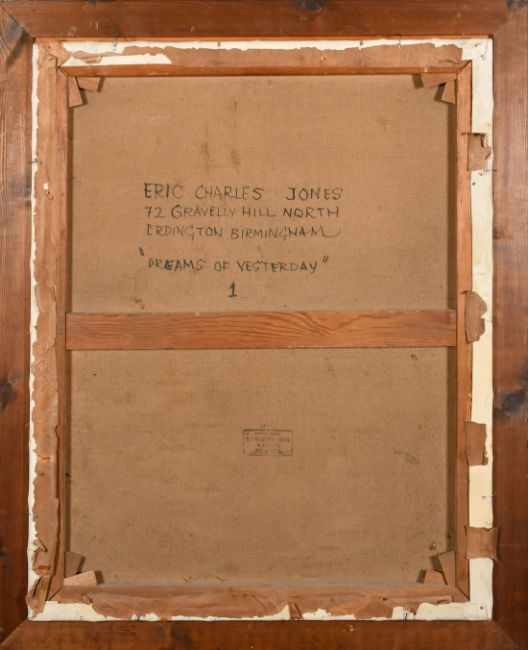 ERIC CHARLES JONES
72 GRAVELLY HILL NORTH
ERDINGTON BIRMINGHAM
"DREAMS OF YESTERDAY"
1